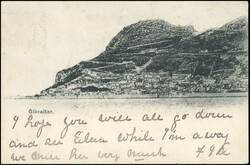 Gibraltar.
I hope you will all go down
and see Elsa while I'm away
we love her very much